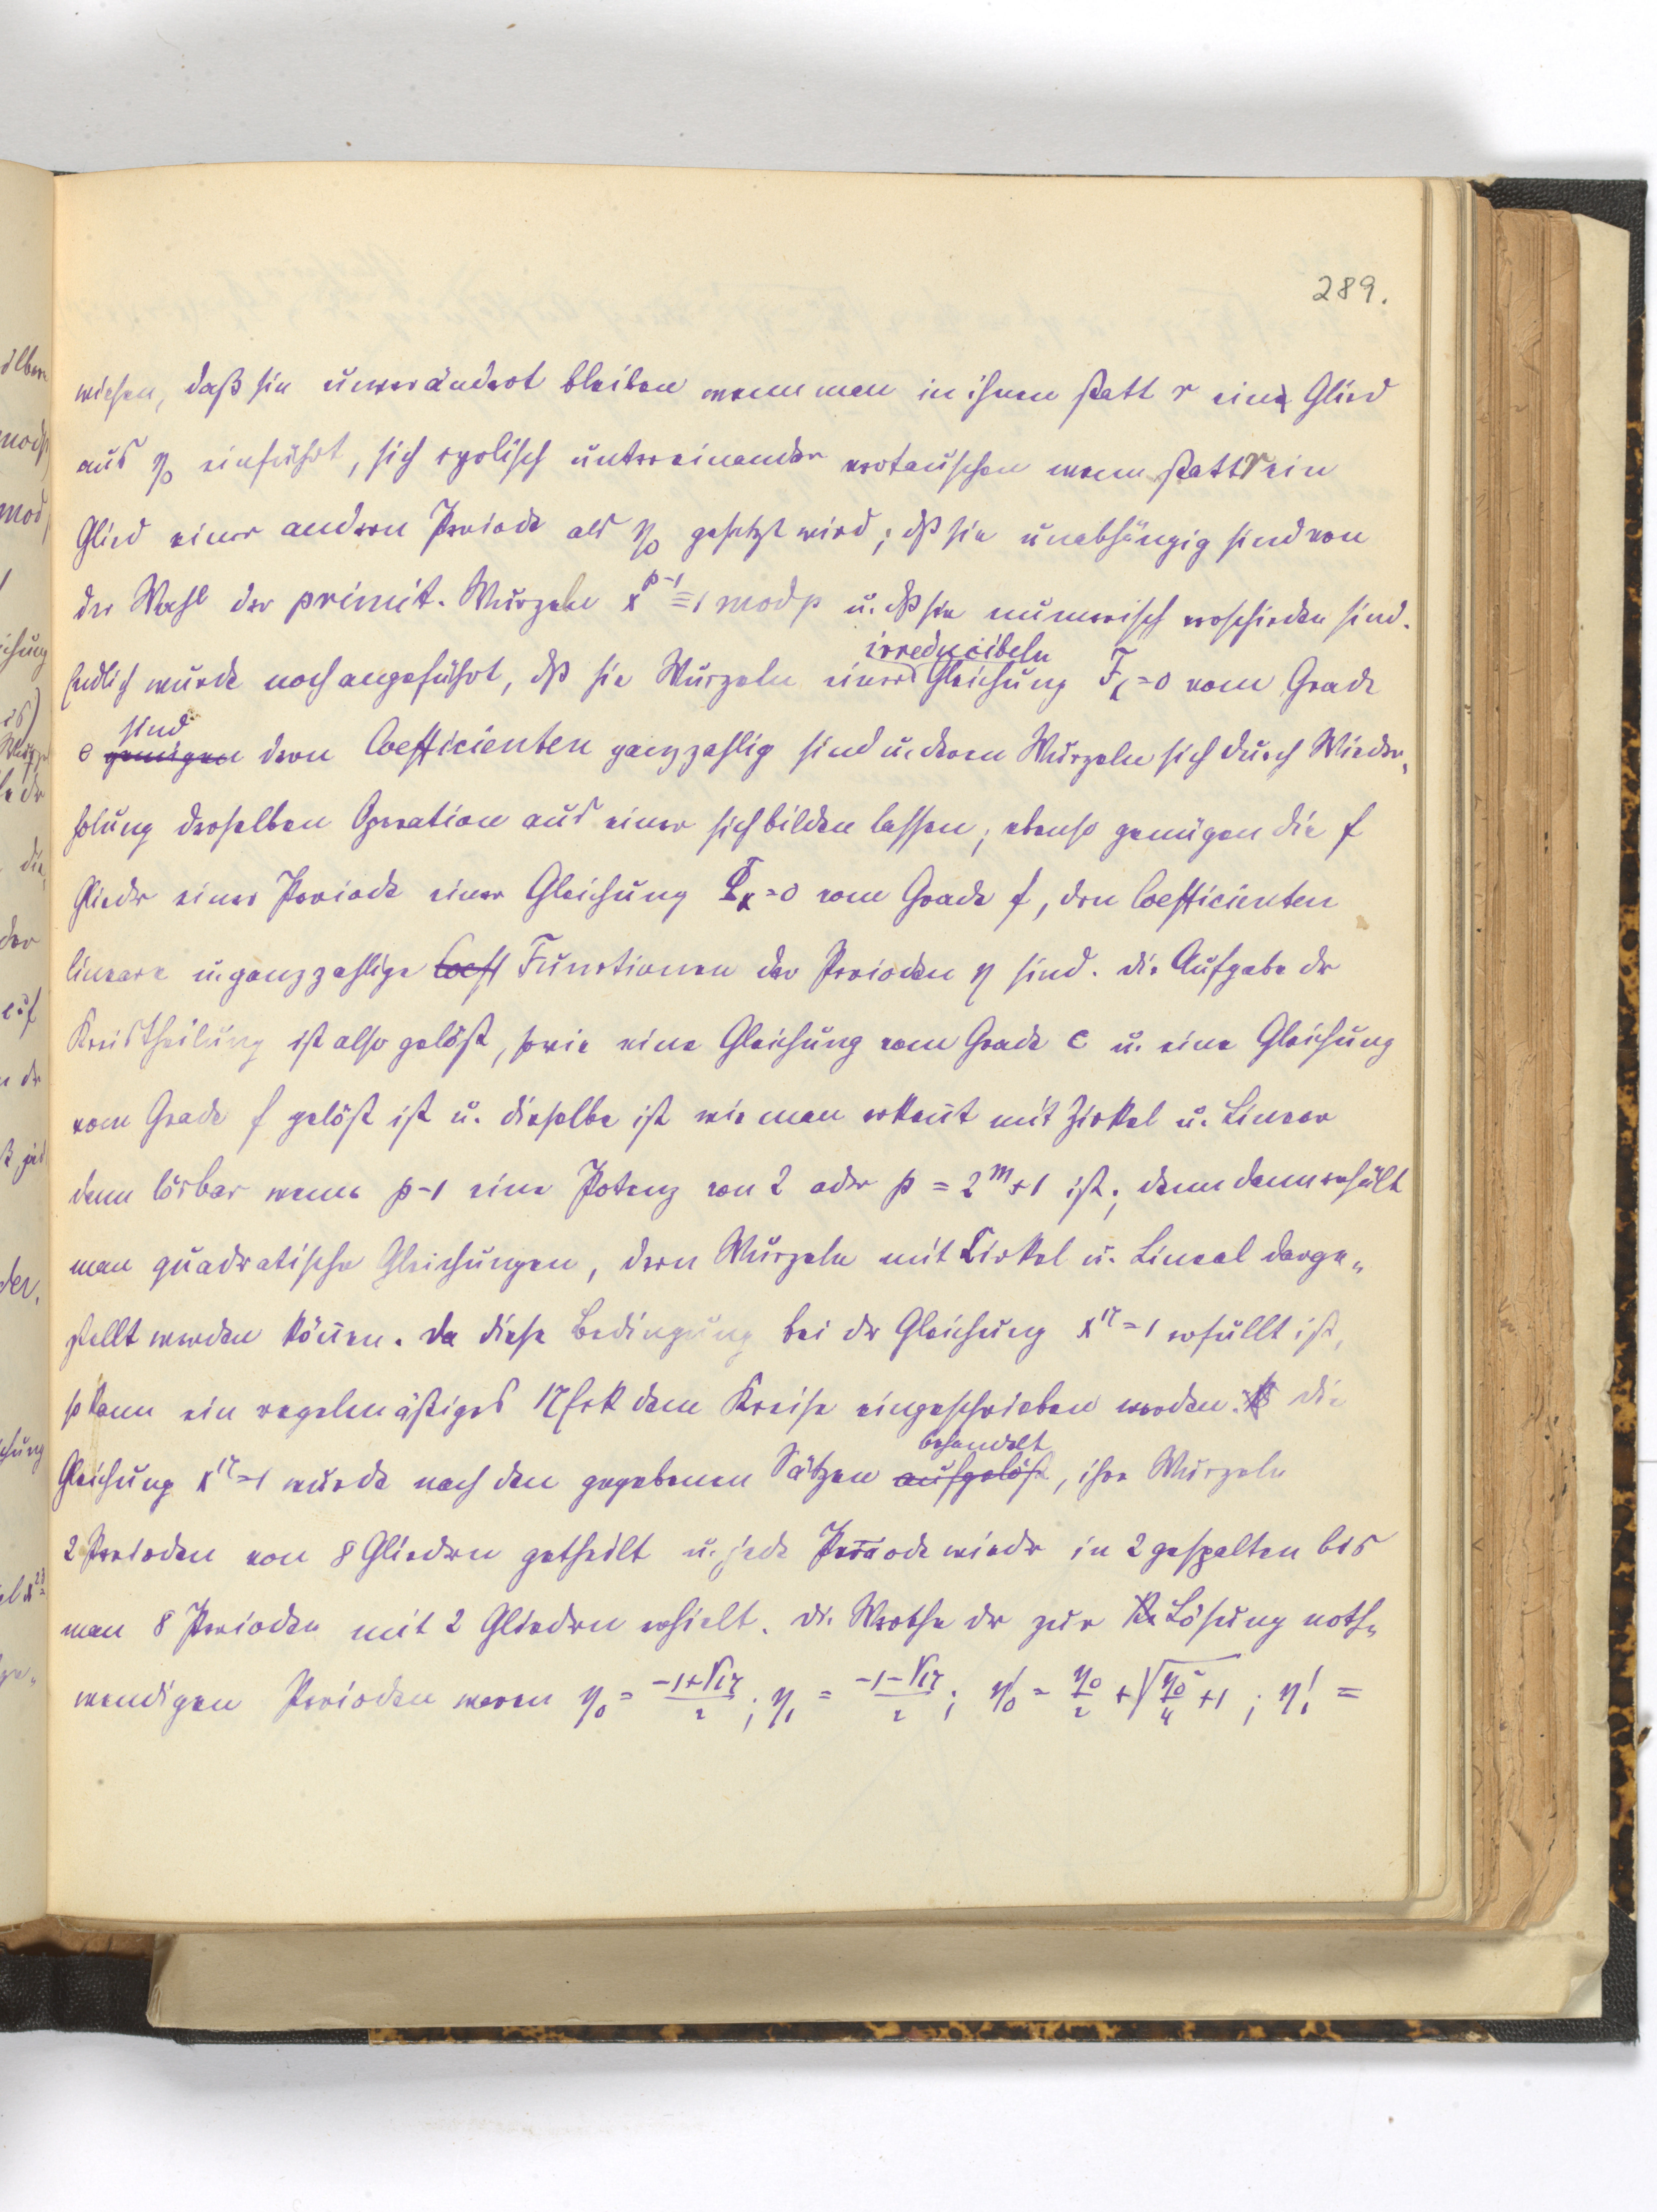 289.
wiesen, daß sie unverändert bleiben wenn man in ihnen statt r ein Glied
aus η₀ einführt, sich cyclisch untereinander vertauschen wenn statt r ein
Glied einer andern Periode als η₀ gesetzt wird; dß sie unabhängig sind von
der Wahl der primit. Wurzeln x^{p-1} ≡ 1 mod p u. dß sie numerisch verschieden sind.
Endlich wurde noch angeführt, dß sie Wurzeln einer irreducibeln Gleichung F_x = 0 vom Grade
e sind deren Coefficienten ganzzahlig sind u. deren Wurzeln sich durch Wieder„
holung derselben Operation aus einer sich bilden lassen, ebenso genügen die f
Glieder einer Periode einer Gleichung Φ_x = 0 vom Grade f, deren Coefficienten
lineare u. ganzzahlige Functionen der Perioden η sind. Die Aufgabe der
Kreistheilung ist also gelöst, sowie eine Gleichung vom Grade e u. eine Gleichung
vom Grade f gelöst ist u. dieselbe ist wie man erkeñt mit Zirkel u. Linear
dann lösbar wenn p-1 eine Potenz von 2 oder p = 2^m + 1 ist; denn dann erhält
man quadratische Gleichungen, deren Wurzeln mit Cirkel u. Lineal darge„
stellt werden köñen. Da diese Bedingung bei der Gleichung x^{17} = 1 erfüllt ist,
so kann ein regelmäßiges 17 Eck dem Kreise eingeschrieben werden. Die
Gleichung x^{17} = 1 wurde nach den gegebenen Sätzen behandelt, ihre Wurzeln
2 Perioden von 8 Gliedern getheilt u. jede Periode wieder in 2 gespalten bis
man 8 Perioden mit 2 Gliedern erhielt. Die Werthe der zur Lösung noth„
wendigen Perioden waren η₀ = (-1+√17)/2; η₁ = (-1-√17)/2; η₀' = η₀/2 + √(η₀²/4 + 1); η₁' =